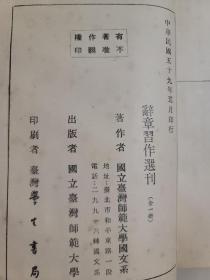 中華民國五十九年五月印行
有著作權
不准翻印
辭章習作選刊（全一冊）
著作者 國立臺灣師範大學國文系
地址：臺北市和平東路一段
電話：二九九三六轉國文系
出版者 國立臺灣師範大學
印刷者 臺灣學生書局